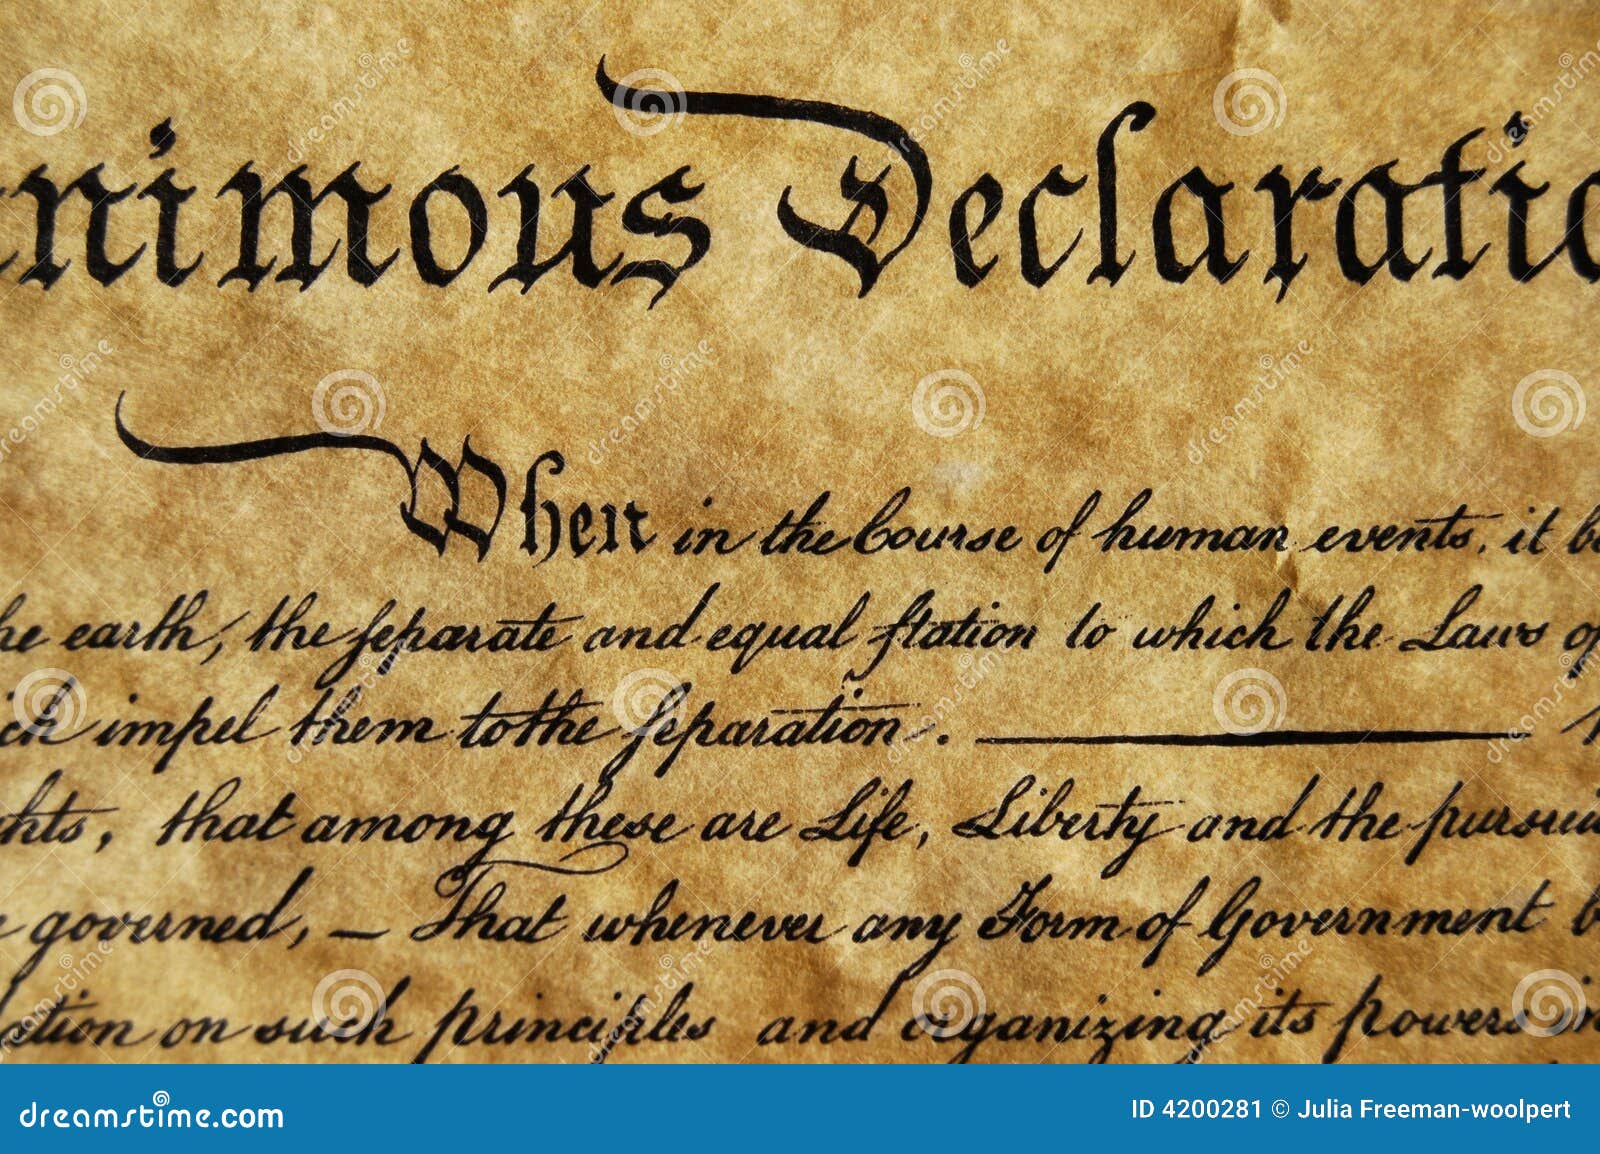 nimous Declaratio
When in the Course of human events, it be
he earth, the separate and equal station to which the Laws of
ich impel them to the separation.
ghts, that among these are Life, Liberty and the pursuit
e governed, — That whenever any Form of Government b
dation on such principles and organizing its powers in
dreamstime.com
ID 4200281 © Julia Freeman-woolpert